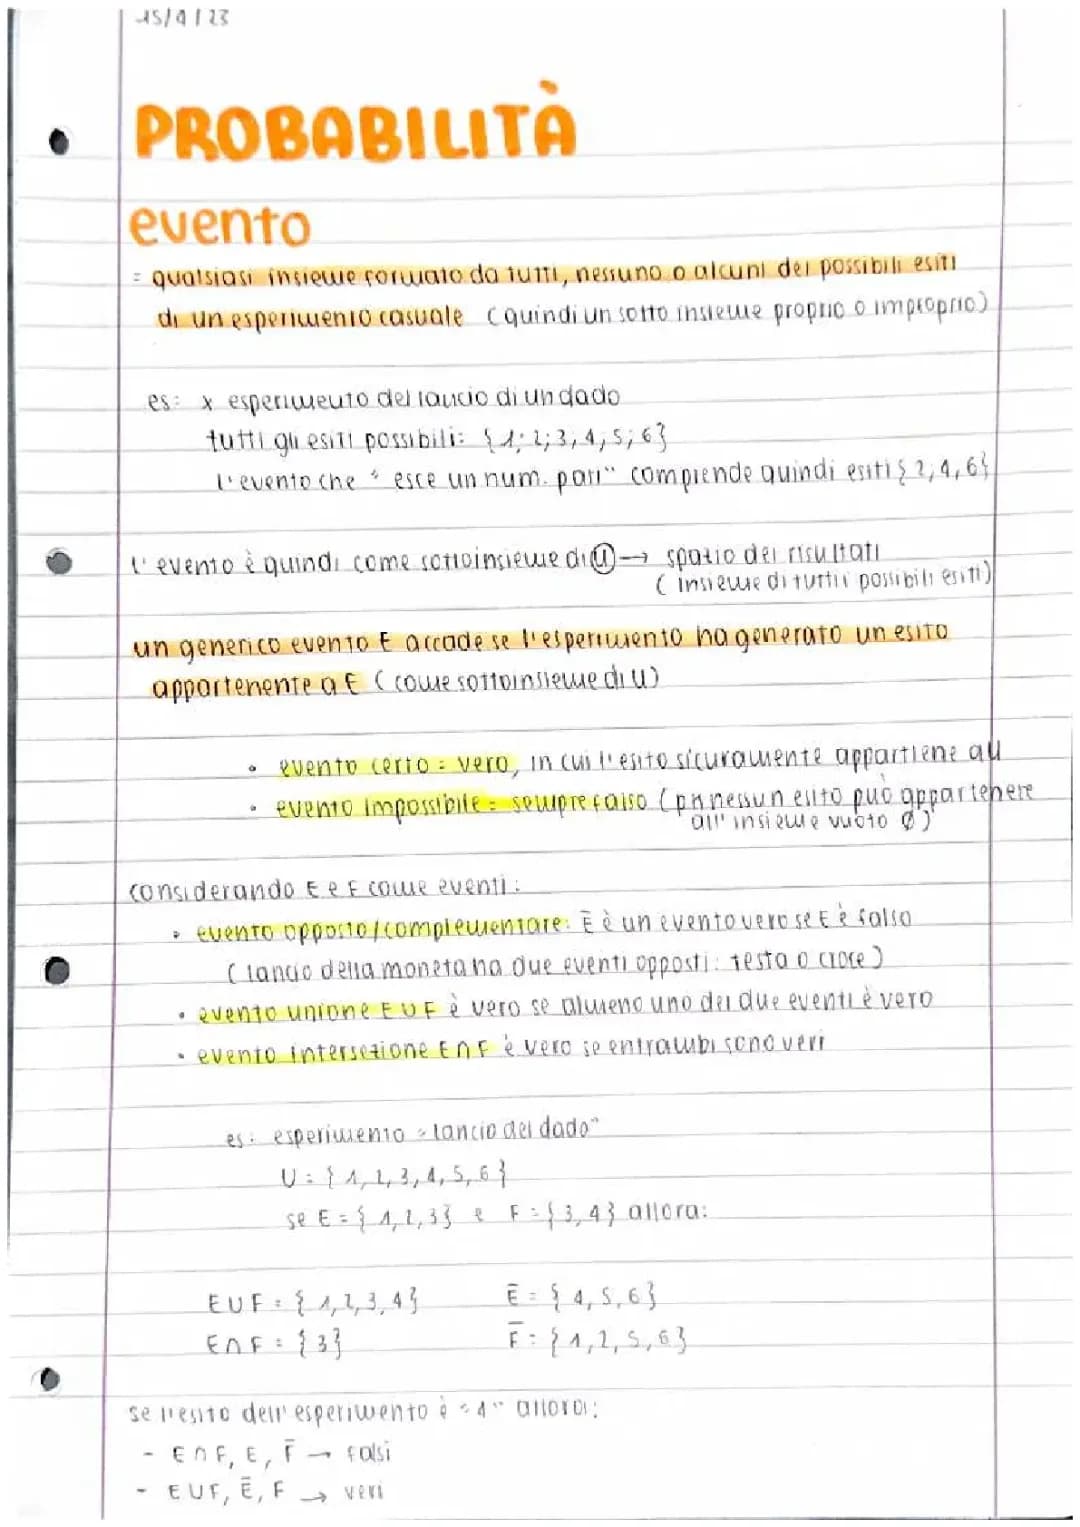 15/4/23
PROBABILITÀ
evento
= qualsiasi insieme formato da tutti, nessuno o alcuni dei possibili esiti
di un esperimento casuale (quindi un sotto insieme proprio o improprio)
es: x esperimento del lancio di un dado
tutti gli esiti possibili: {1; 2; 3, 4, 5; 6}
l'evento che "esce un num. pari" comprende quindi esiti {2, 4, 6}
l'evento è quindi come sottoinsieme di U → spazio dei risultati
(insieme di tutti i possibili esiti)
un generico evento E accade se l'esperimento ha generato un esito
appartenente a E (come sottoinsieme di U)
• evento certo = vero, in cui l'esito sicuramente appartiene a U
• evento impossibile = sempre falso (pk nessun esito può appartenere
all'insieme vuoto Ø)
considerando E e F come eventi:
• evento opposto/complementare: E̅ è un evento vero se E è falso
(lancio della moneta ha due eventi opposti: testa o croce)
• evento unione E∪F è vero se almeno uno dei due eventi è vero
• evento intersezione E∩F è vero se entrambi sono veri
es: esperimento "lancio del dado"
U = {1, 2, 3, 4, 5, 6}
se E = {1, 2, 3} e F = {3, 4} allora:
E∪F = {1, 2, 3, 4} E̅ = {4, 5, 6}
E∩F = {3} F̅ = {1, 2, 5, 6}
se l'esito dell'esperimento è "4" allora:
- E∩F, E, F̅ → falsi
- E∪F, E̅, F → veri